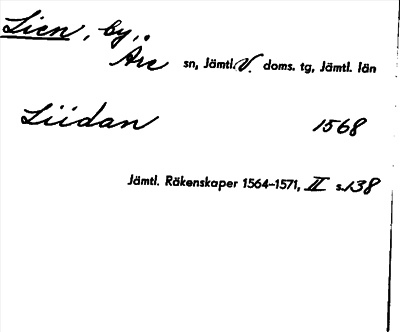 Lien, by,
Åre sn, Jämtl. V. doms. tg, Jämtl. län
Liidan 1568
Jämtl. Räkenskaper 1564-1571, II s. 138